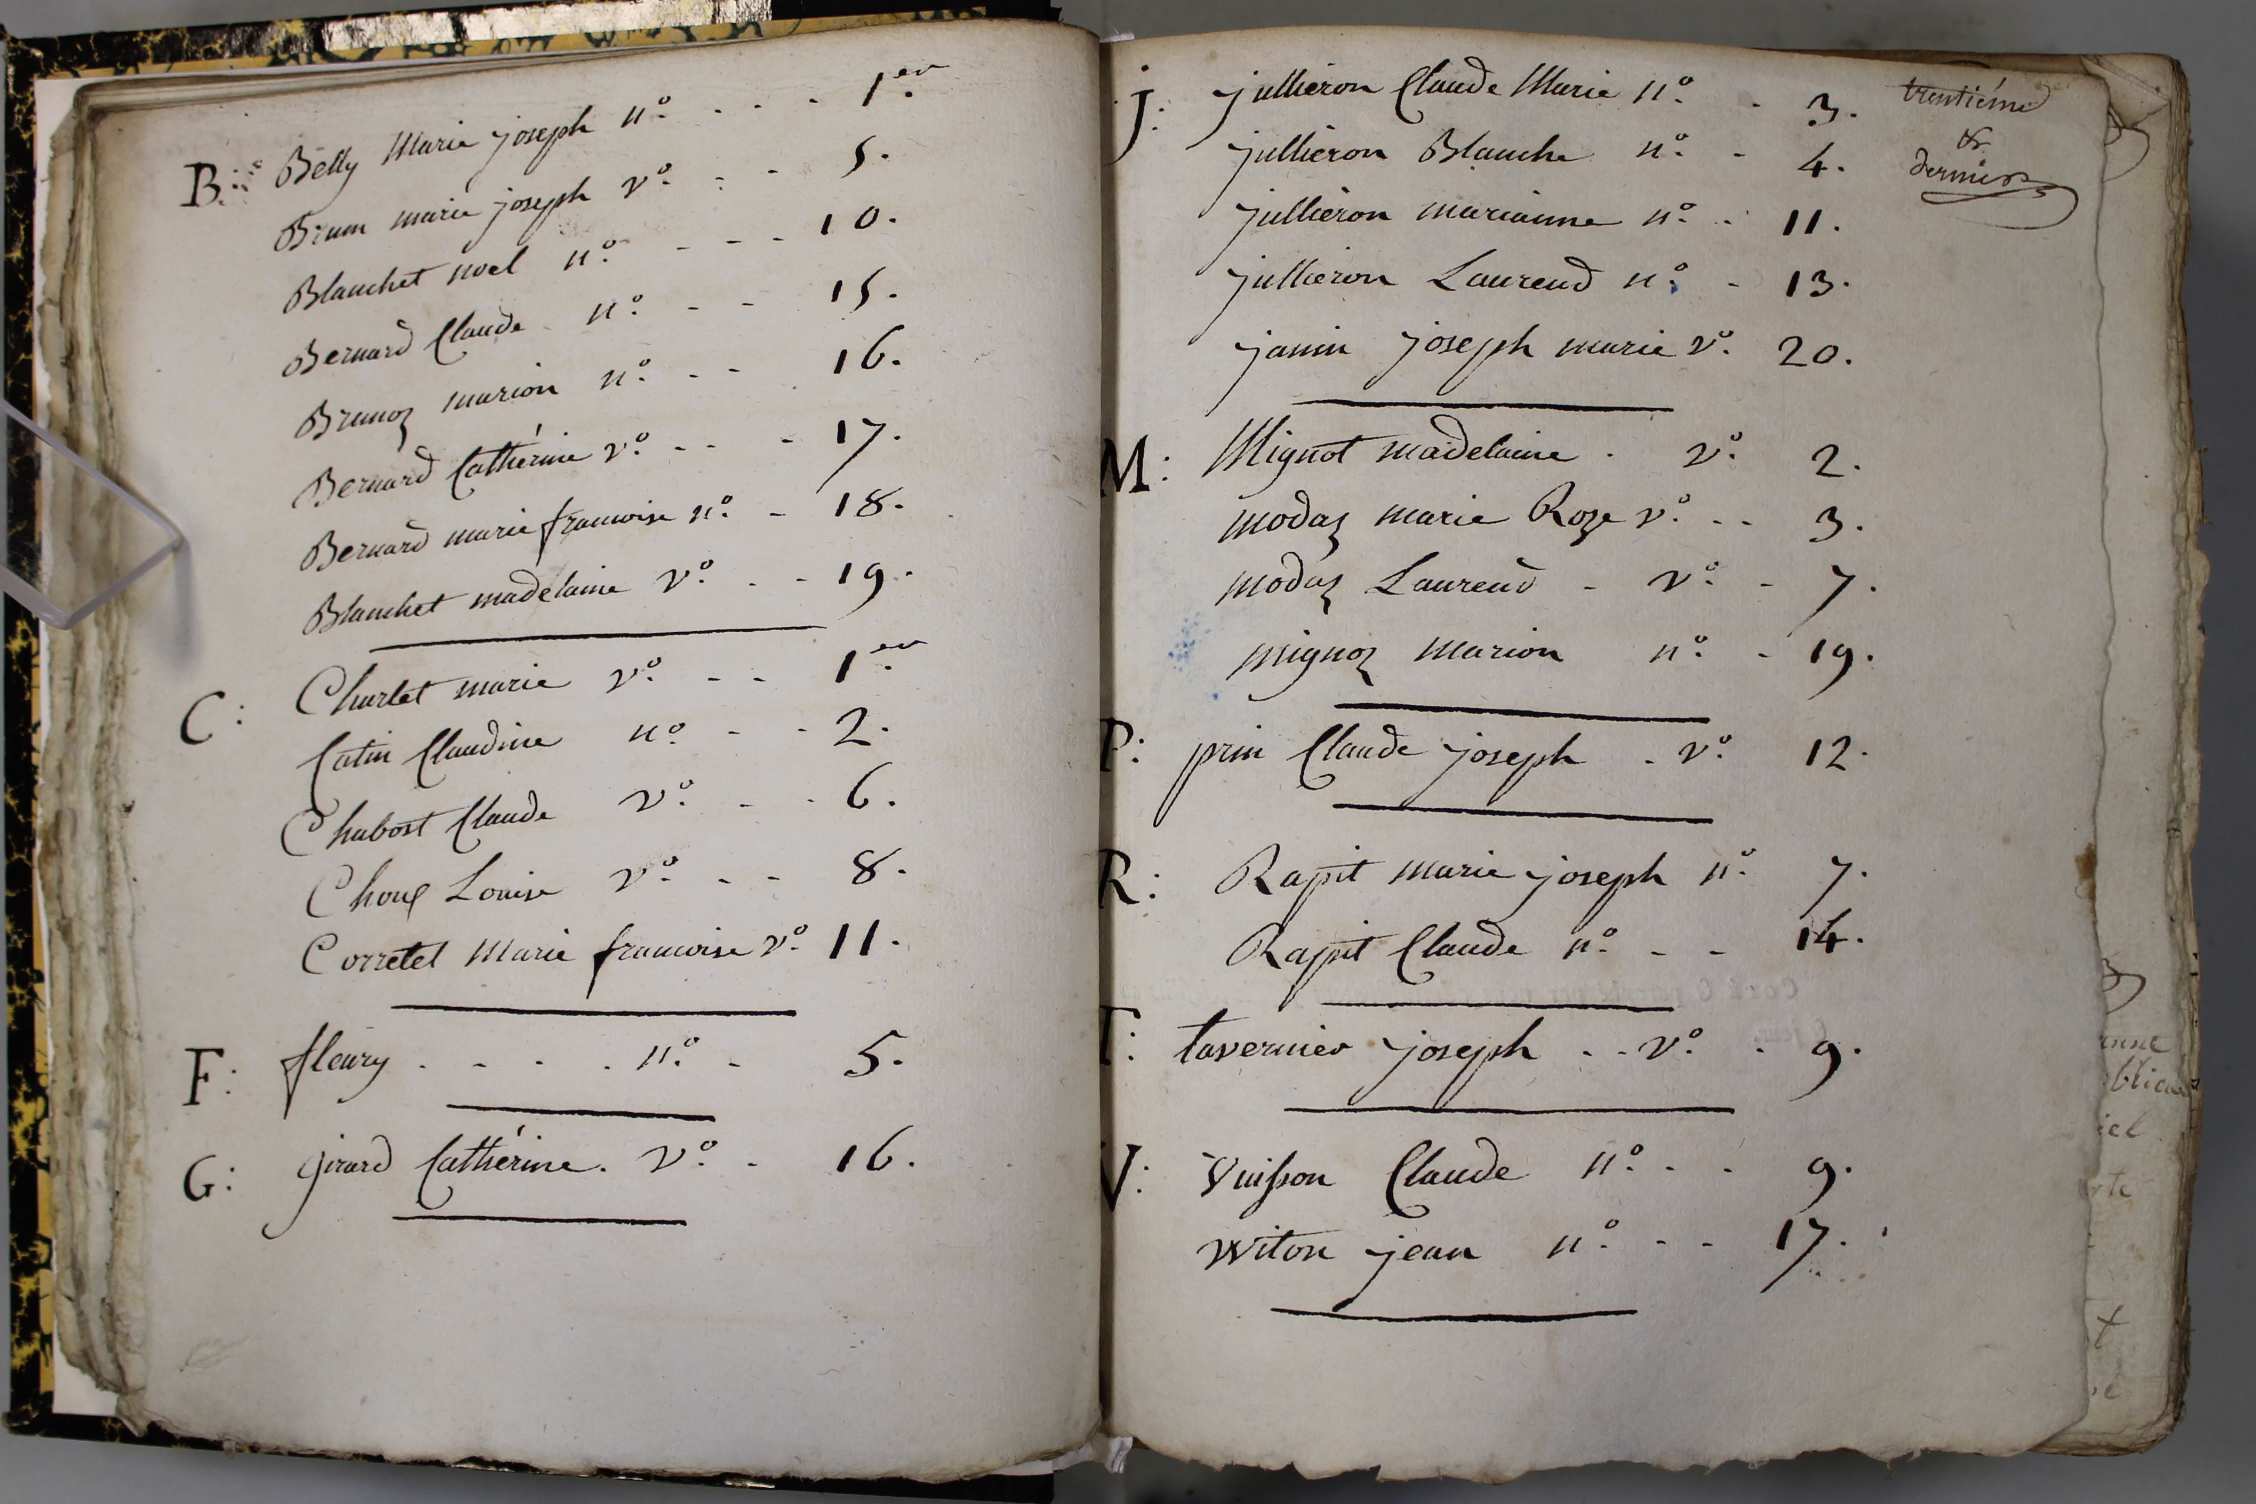 B: Belly Marie joseph n.º - - - 1.er
Brun marie joseph v.º - - 5.
Blanchet noel n.º - - - 10.
Bernard Claude n.º - - 15.
Brunoz marion n.º - - 16.
Bernard Cathérine v.º - - - 17.
Bernard marie francoise n.º - 18.
Blanchet madelaine v.º - - 19.
C: Charlet marie v.º - - 1.er
Catin Claudine n.º - - 2.
Chabost Claude v.º - - 6.
Choux Louise v.º - - 8.
Corretel Marie francoise v.º 11.
F: fleury - - - . n.º - 5.
G: girard Cathérine. v.º - 16.
J: jullieron Claude Marie n.º - 3.
jullieron Blanche n.º - 4.
jullieron marianne n.º - 11.
jullieron Laurend n.º - 13.
janin joseph marie v.º 20.
trentiéme
&
dernier
M: Mignot madelaine . v.º 2.
modaz marie Roze v.º - - 3.
modaz Laurend - v.º - 7.
mignoz Marion n.º - 19.
P: prin Claude joseph . v.º 12.
R: Rapit marie joseph n.º 7.
Rapit Claude n.º - - 14.
T: tavernier joseph - - v.º - 9.
V: Vuisson Claude n.º - - 9.
Witon jean n.º - - 17.